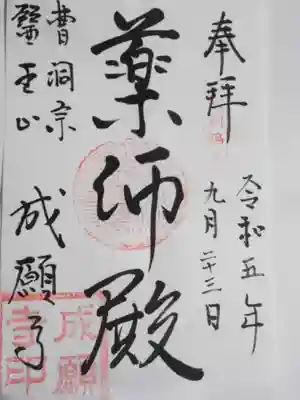 奉拝
令和五年
九月二十三日
薬師殿
曹洞宗
醫王山
成願寺
成願
寺印